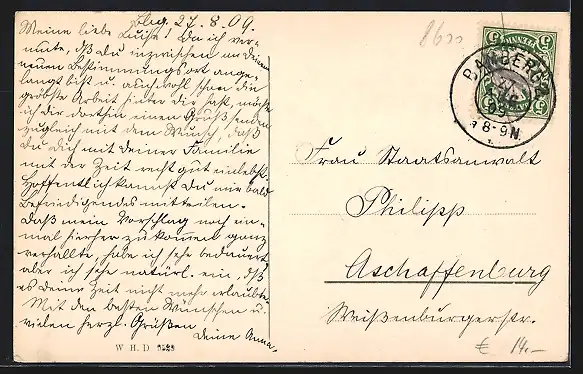 Bbg. 27.8.09.
Meine liebe Luise! Da ich ver-
mute, dß du inzwischen an deinem
neuen Bestimmungsort ange-
langt bist u. auch wohl schon die
größte Arbeit hinter dir hast, möchte
ich dir dorthin einen Gruß senden
zugleich mit dem Wunsch, daß
du dich mit deiner Familie
mit der Zeit recht gut einlebst.
Hoffentlich kannst du mir bald
Befriedigendes mitteilen.
Daß mein Vorschlag noch ein-
mal hierher zu kommen ganz
verhallte, habe ich sehr bedauert
aber ich sehe natürl. ein, dß
es deine Zeit nicht mehr erlaubte.
Mit den besten Wünschen u.
vielen herzl. Grüßen
deine Anna.
W. H. D.
8600
BAMBERG
27.
AUG
09
8-9N
5 5
Frau Staatsanwalt
Philipp
Aschaffenburg
Weißenburgerstr.
€ 14.-